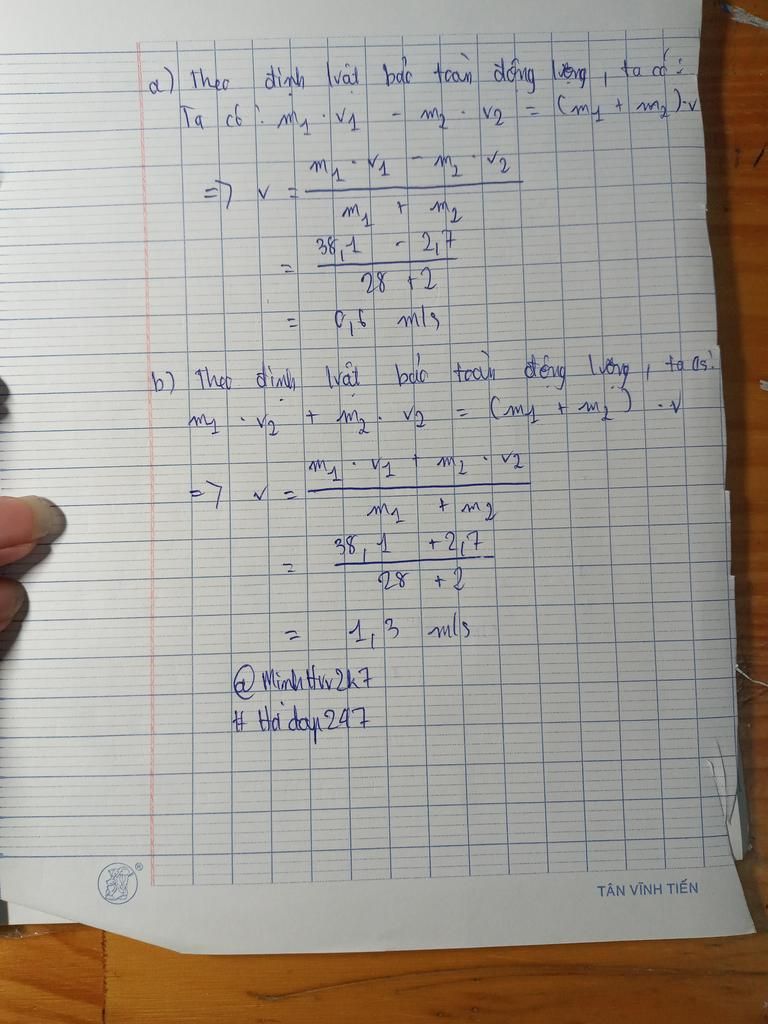 a) Theo định luật bảo toàn động lượng, ta có:
Ta có: m₁ · v₁ - m₂ · v₂ = (m₁ + m₂) · v
=> v = (m₁ · v₁ - m₂ · v₂) / (m₁ + m₂)
= (38,1 - 2,7) / (28 + 2)
= 0,6 m/s
b) Theo định luật bảo toàn động lượng, ta có:
m₁ · v₂ + m₂ · v₂ = (m₁ + m₂) · v
=> v = (m₁ · v₁ + m₂ · v₂) / (m₁ + m₂)
= (38,1 + 2,7) / (28 + 2)
= 1,3 m/s
# Hỏi đáp 247
TÂN VĨNH TIẾN